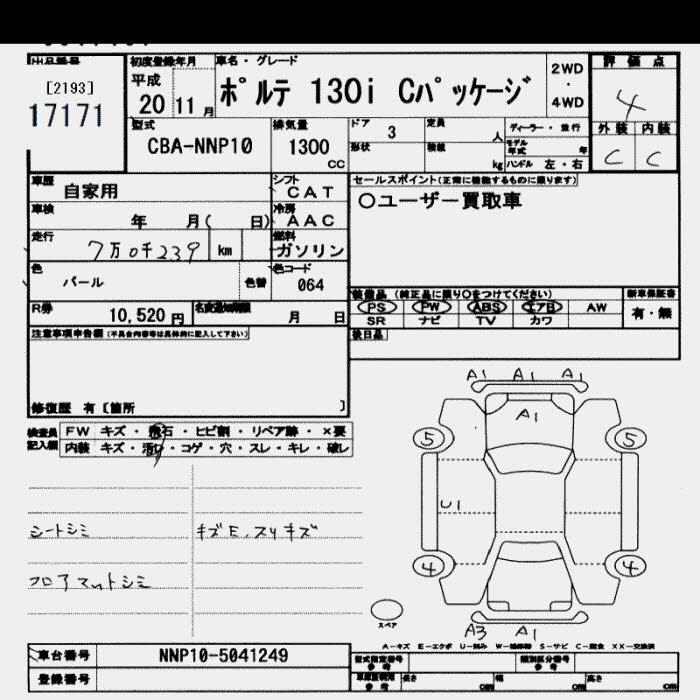 出品番号
[2193]
17171
初度登録年月
平成
20 11 月
車名・グレード
ポルテ 130i Cパッケージ
2WD
・
4WD
評価点
4
外装 内装
C C
型式
CBA-NNP10
排気量
1300
CC
ドア 3
定員
人
形状
積載
kg
ディーラー・並行
モデル年式
年
ハンドル 左・右
車歴
自家用
シフト
CAT
車検
年 月( 日)
冷房
AAC
走行
7万0千239 km
燃料
ガソリン
色
パール
色替
色コード
064
R券
10,520 円
名変通知期限
月 日
セールスポイント(正常に機能するものに限ります)
○ユーザー買取車
装備品 (純正品に限り○をつけてください)
PS PW ABS エアB AW
SR ナビ TV カワ
新車保証書
有・無
後日品
注意事項申告欄 (不具合内容等は具体的に記入して下さい)
修復歴 有〔箇所 〕
検査員記入欄
FW キズ・飛石・ヒビ割・リペア跡・×要
内装 キズ・汚れ・コゲ・穴・スレ・キレ・破レ
シートシミ
キズE.スリキズ
フロアマットシミ
A1 A1 A1
A1
5 5
U1
4 4
スペア
A3 A1
A-キズ E-エクボ U-凹み W-補修跡 S-サビ C-腐食 XX-交換済
車台番号
NNP10-5041249
登録番号
型式指定番号
参考
類別区分番号
参考
車両寸法用
参考
長さ cm 幅 cm 高さ cm